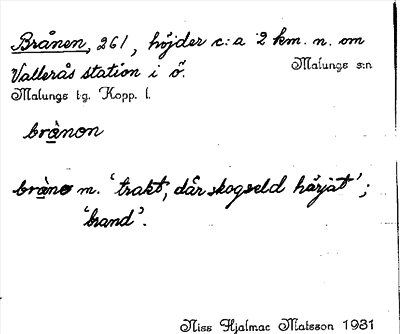 Brånen, 261, höjder c:a 2 km. n. om
Vallerås station i ö.
Malungs s:n
Malungs tg. Kopp. l.
brànon
bràno m. 'trakt, där skogseld härjat';
'brand'.
Niss Hjalmar Matsson 1931